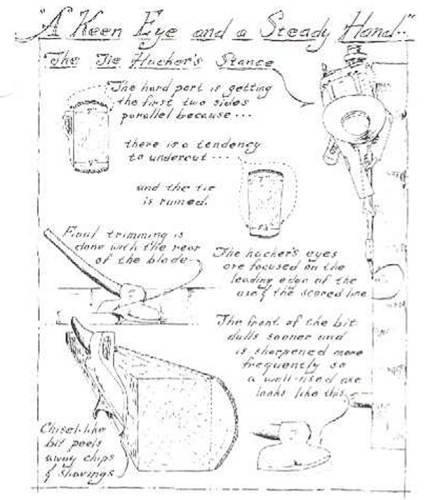 "A Keen Eye and a Steady Hand..."
The Tie Hacker's Stance
The hard part is getting
the first two sides
parallel because...
there is a tendency
to undercut...
and the tie
is ruined.
Final trimming is
done with the rear
of the blade
The hacker's eyes
are focused on the
leading edge of the
axe & the scored line
The front of the bit
dulls sooner and
is sharpened more
frequently so
a well-used axe
looks like this
Chisel-like
bit peels
away chips
& shavings